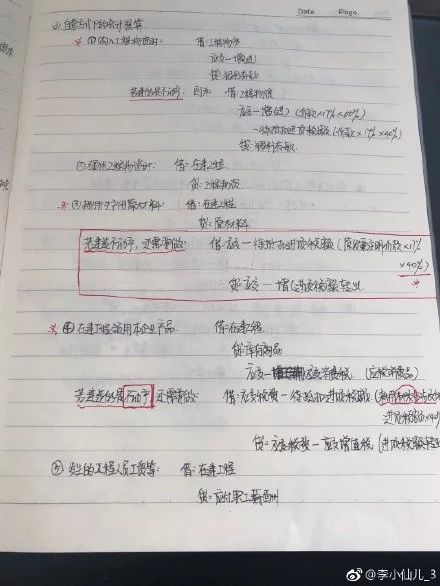 Date. Page.
② 自营方式下的会计核算
※ ①购入工程物资时: 借:工程物资
应交—增(进)
贷:银行存款
若建造的是不动产, 则: 借:工程物资
应交—增(进) (价款×17%×60%)
—待抵扣进项税额 (价款×17%×40%)
贷:银行存款.
②领用工程物资时: 借:在建工程
贷:工程物资
※ ③领用生产用原材料: 借:在建工程
贷:原材料
若建造不动产,还需要做: 借:应交—待抵扣进项税额 (原材料 价款×17%
×40%)
贷:应交—增(进项税额转出)
※ ④在建工程领用本企业产品. 借:在建工程.
贷:库存商品
应交 应交消费税. (应税消费品)
若建造的是不动产 还需要做: 借:应交税费—待抵扣进项税额
进项税额×40%
贷:应交税费—应交增值税 (进项税额转出
⑤发生的工程人员工资等: 借:在建工程
贷:应付职工薪酬
@李小仙儿_3